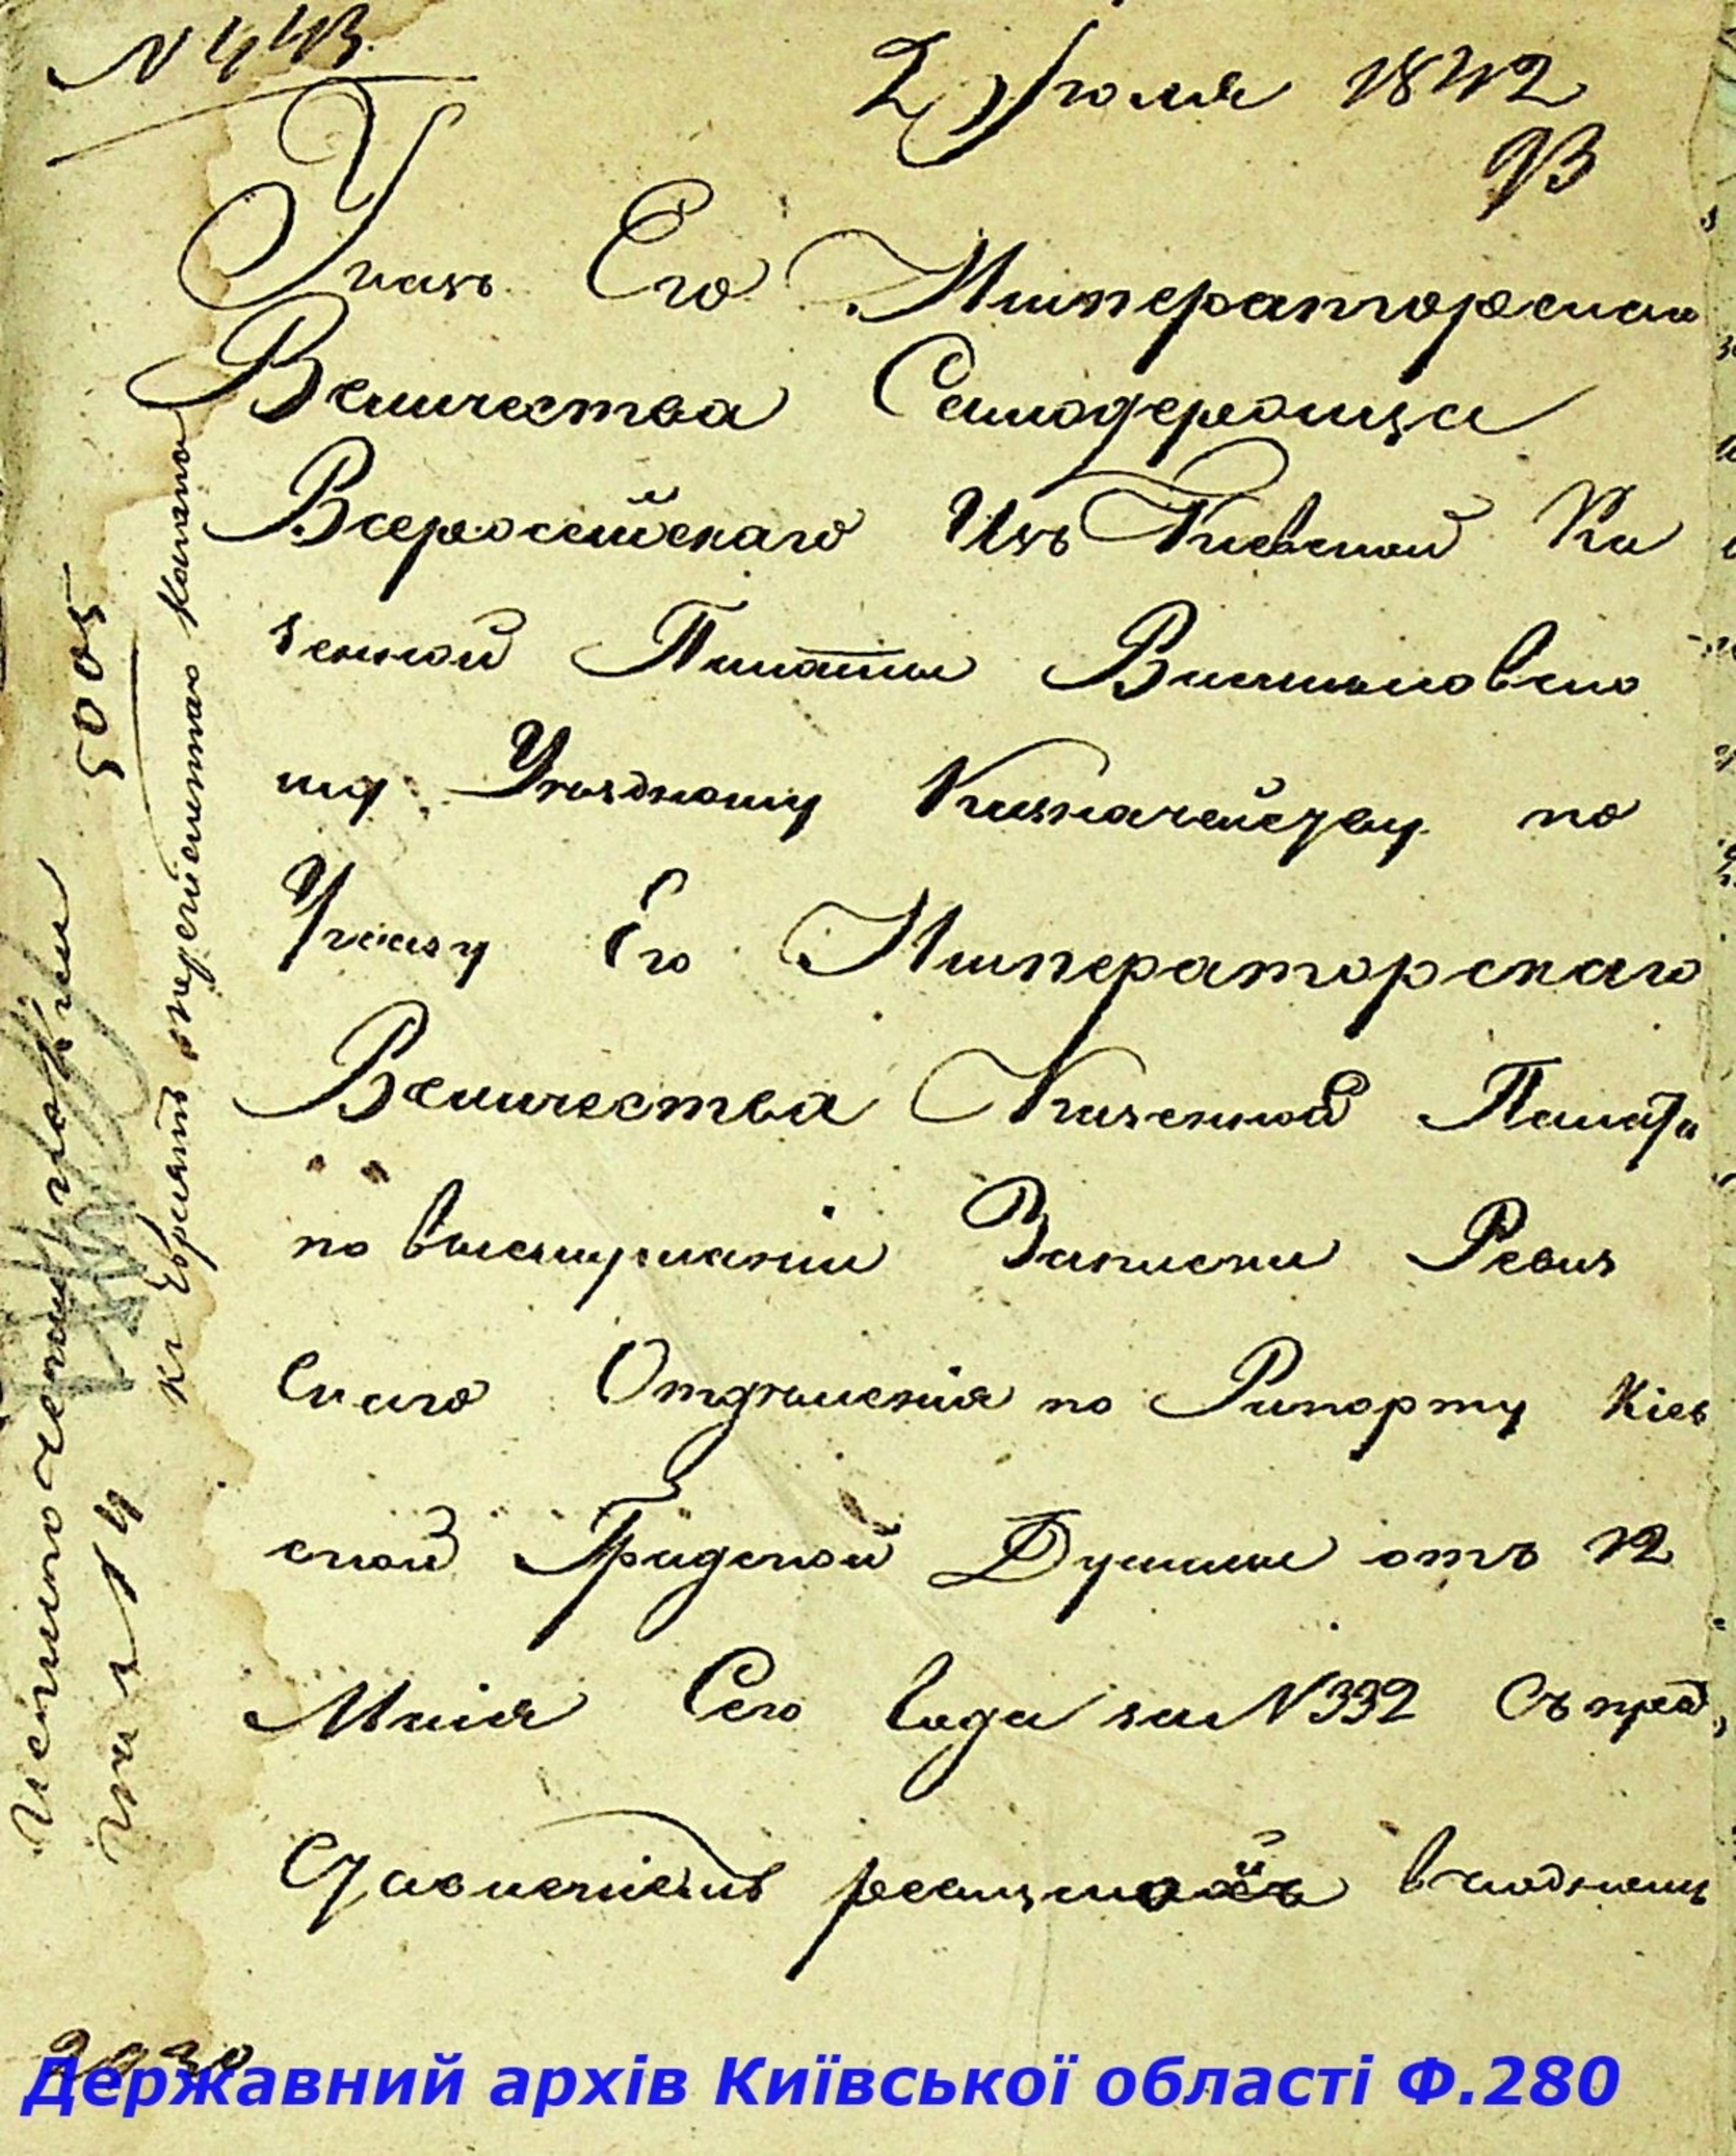 N 443
2 Июля 1842
93
Указъ Его Императорскаго
Величества Самодержца
Всероссийскаго Изъ Киевской Ка
зенной Палаты Васильковско
му Уѣздному Казначейству по
Указу Его Императорскаго
Величества Казенной Палата
по выслушании Записки Ревиз
скаго Отдѣления по Рапорту Кіев
ской Градской Думы отъ 12
Маія Сего Года за N 332 Съ пред
ставленіемъ
5005
на 14
Державний архів Київської області Ф.280